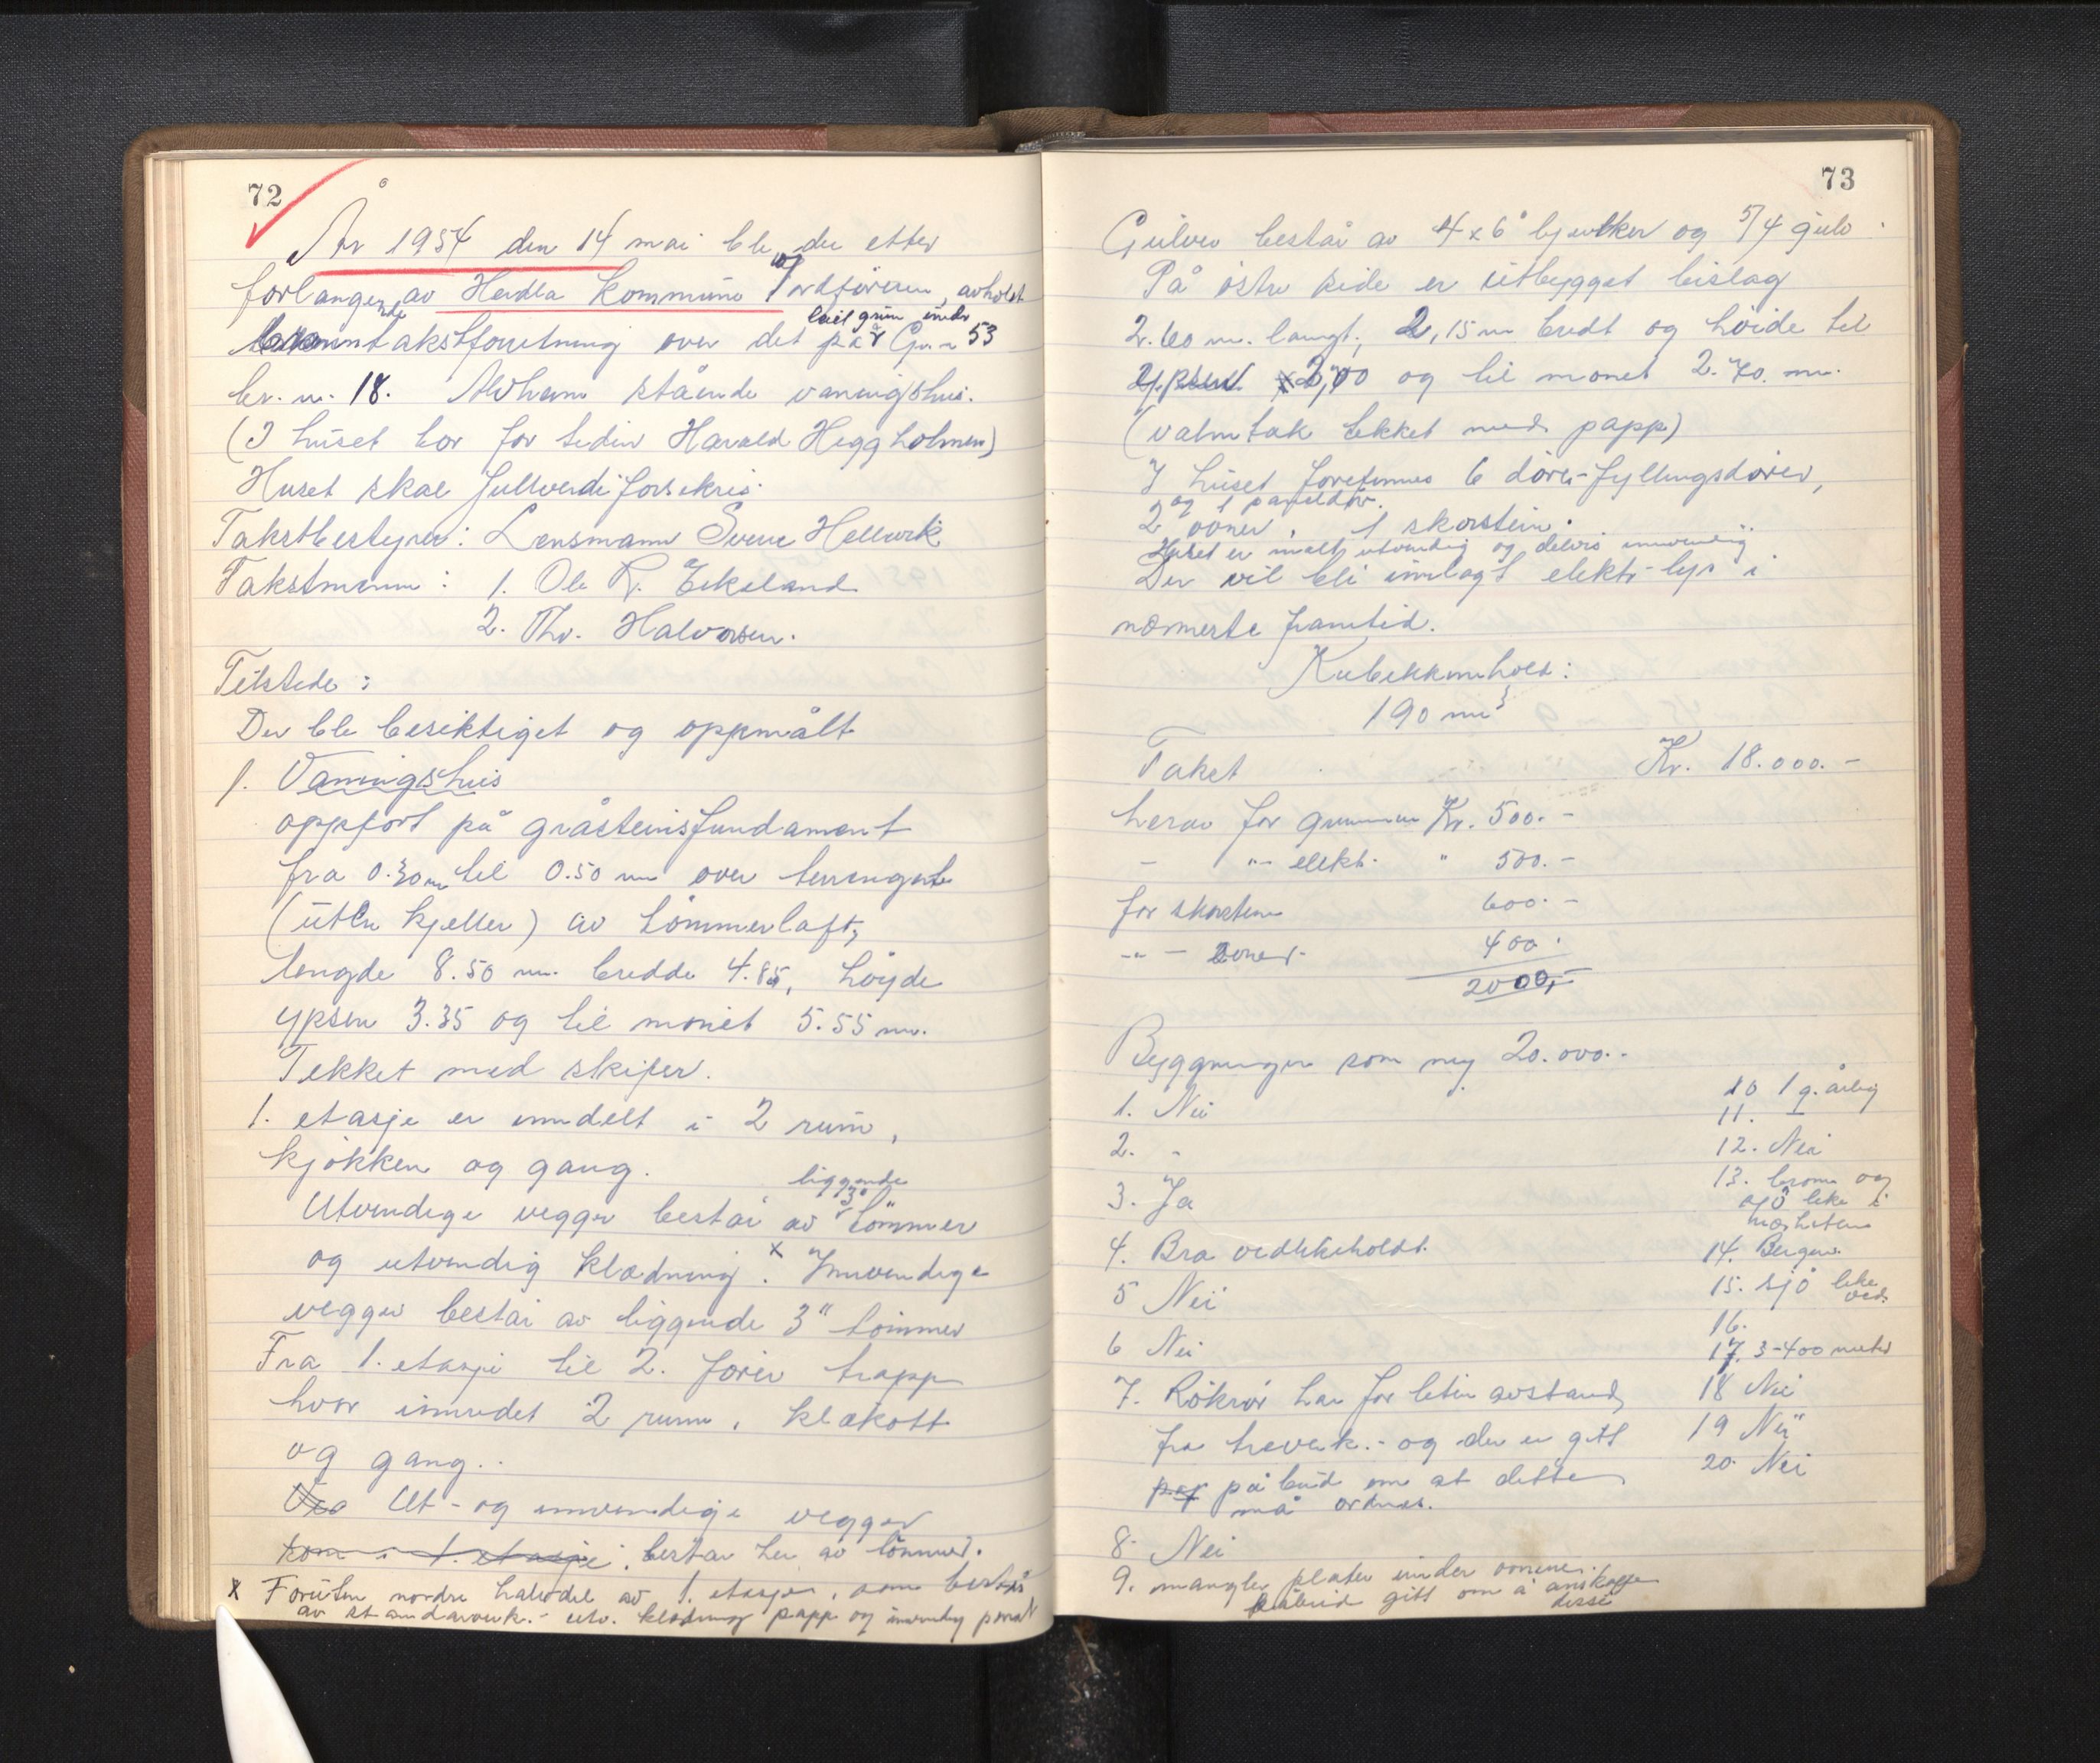 72
År 1954 den 14 mai ble der etter
forlangende av Herdla kommune v/ordføreren, avholdt
branntakstforretning over det på leiet grunn under Gr. n 53
br. n. 18. Alvheim stående vaningshus.
(I huset bor for tiden Harald Heggholmen)
Huset skal fullverdiforsikres.
Takstbestyrer: Lensmann Sverre Hellevik
Takstmenn: 1. Ole R. Eikeland
2. Thv. Halvorsen.
Tilstede:
Der ble besiktiget og oppmålt
1. Vaningshus
oppført på gråsteinsfundament
fra 0.30 m til 0.50 m over terrenget
(uten kjeller) av tømmerlaft,
lengde 8.50 m. bredde 4.85, høyde
ypsen 3.35 og til mønet 5.55 m.
Tekket med skifer.
1. etasje er inndelt i 2 rum,
kjøkken og gang.
Utvendige vegger består av liggende 3" tømmer
og utvendig kledning. x Innvendige
vegger består av liggende 3" tømmer
Fra 1. etasje til 2. fører trapp
hvor innredet 2 rum, klekott
og gang.
Ut- og innvendige vegger
som i 1. etasje. består her av tømmer.
x Foruten nordre halvdel av 1. etasjen, som består
av standarverk.- utv. kledning papp og innvendig panel
73
Gulvet består av 4x6" bjelker og 5/4 gulv.
På østre side er utbygget bislag
2.60 m. langt, 2,15 m bredt og høide til
ypsen 2,00 og til mønet 2.70. m.
(valmtak tekket med papp)
I huset forefinnes 6 døre-fyllingsdører,
og 1 paneldør.
2 ovner, 1 skorstein.
Huset er malt utvendig og delvis innvendig
Der vil bli innlagt elektr-lys i
nærmeste framtid.
Kubikkinnhold:
190 m3
Takst Kr. 18.000.-
herav for grunnmur Kr. 500.-
- "- elekt. " 500.-
for skorstein 600.-
-"- ovner. 400.
2000,-
Byggningen som ny 20.000.-
1. Nei
2. "
3. Ja
4. Bra vedlikeholdt.
5 Nei
6 Nei
7. Røkrør har for liten avstand
fra treverk.- og der er gitt
påbud om at dette
må ordnes.
8. Nei
9. mangler plater under ovnene.
påbud gitt om å anskaffe
disse
10 1 g. årlig
11. -
12. Nei
13. brønn og
sjø like i
nærheten
14. Bergen.
15. sjø like
ved.
16.
17. 3-400 meter
18 Nei
19 Nei
20. Nei